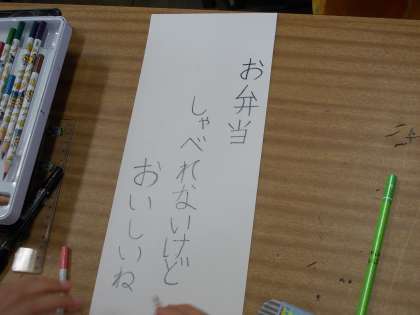 お弁当
しゃべれないけど
おいしいね